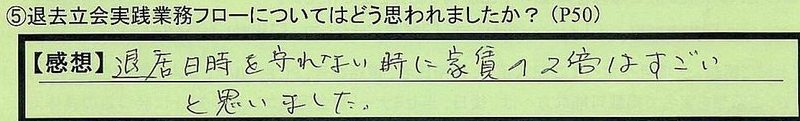 ⑤退去立会実践業務フローについてはどう思われましたか？（P50）
【感想】退居日時を守れない時に家賃の2倍はすごい
と思いました。